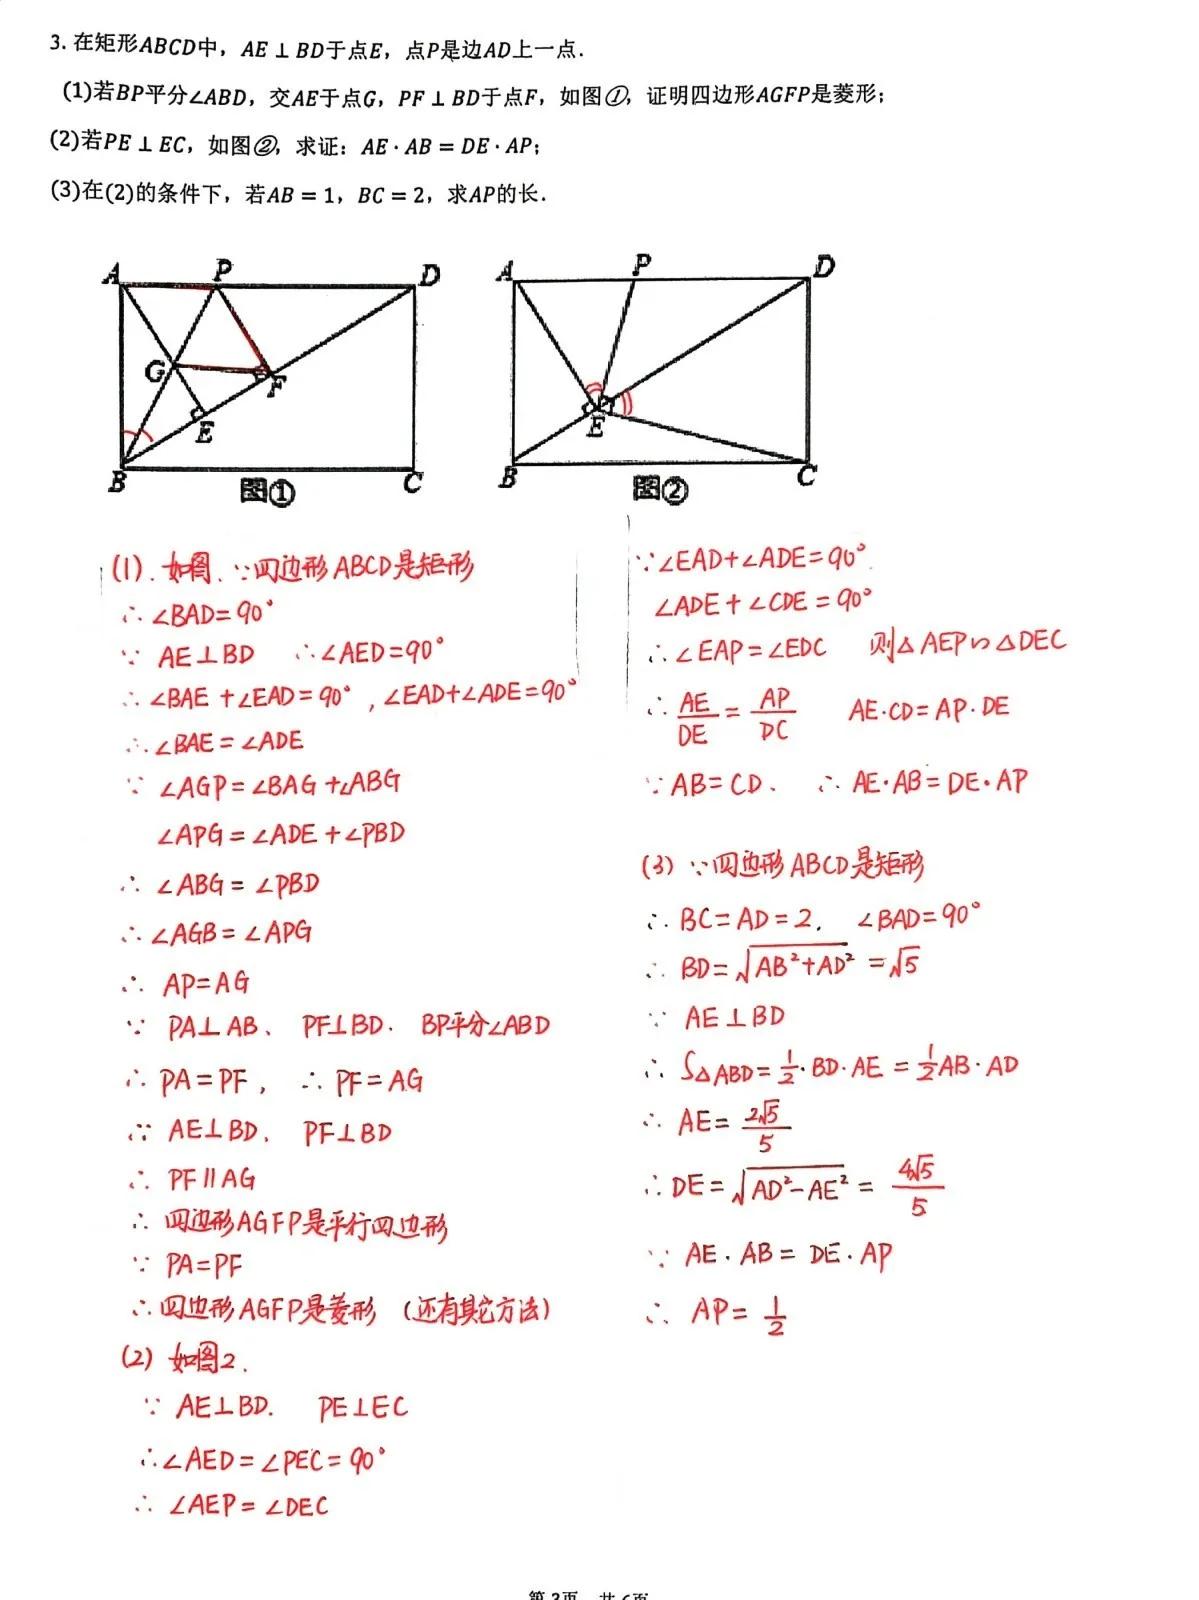 3. 在矩形ABCD中，AE ⊥ BD于点E，点P是边AD上一点.
(1)若BP平分∠ABD，交AE于点G，PF ⊥ BD于点F，如图①，证明四边形AGFP是菱形；
(2)若PE ⊥ EC，如图②，求证：AE · AB = DE · AP；
(3)在(2)的条件下，若AB = 1，BC = 2，求AP的长.
A P D
G F
E
B C
图①
A P D
E
B C
图②
(1). 如图、∵四边形ABCD是矩形
∴ ∠BAD=90°
∵ AE⊥BD ∴∠AED=90°
∴ ∠BAE+∠EAD=90°, ∠EAD+∠ADE=90°
∴ ∠BAE=∠ADE
∵ ∠AGP=∠BAG+∠ABG
∠APG=∠ADE+∠PBD
∴ ∠ABG=∠PBD
∴ ∠AGB=∠APG
∴ AP=AG
∵ PA⊥AB、 PF⊥BD. BP平分∠ABD
∴ PA=PF, ∴ PF=AG
∵ AE⊥BD、 PF⊥BD
∴ PF∥AG
∴ 四边形AGFP是平行四边形
∵ PA=PF
∴ 四边形AGFP是菱形 (还有其它方法)
(2) 如图2.
∵ AE⊥BD. PE⊥EC
∴ ∠AED=∠PEC=90°
∴ ∠AEP=∠DEC
∵ ∠EAD+∠ADE=90°.
∠ADE+∠CDE=90°
∴ ∠EAP=∠EDC 则△AEP∽△DEC
∴ AE/DE = AP/DC AE·CD=AP·DE
∵ AB=CD、 ∴ AE·AB=DE·AP
(3) ∵四边形ABCD是矩形
∴ BC=AD=2. ∠BAD=90°
∴ BD=√(AB²+AD²)=√5
∵ AE⊥BD
∴ S△ABD=1/2·BD·AE=1/2AB·AD
∴ AE=2√5/5
∴ DE=√(AD²-AE²)=4√5/5
∵ AE·AB=DE·AP
∴ AP=1/2
第3页 共6页